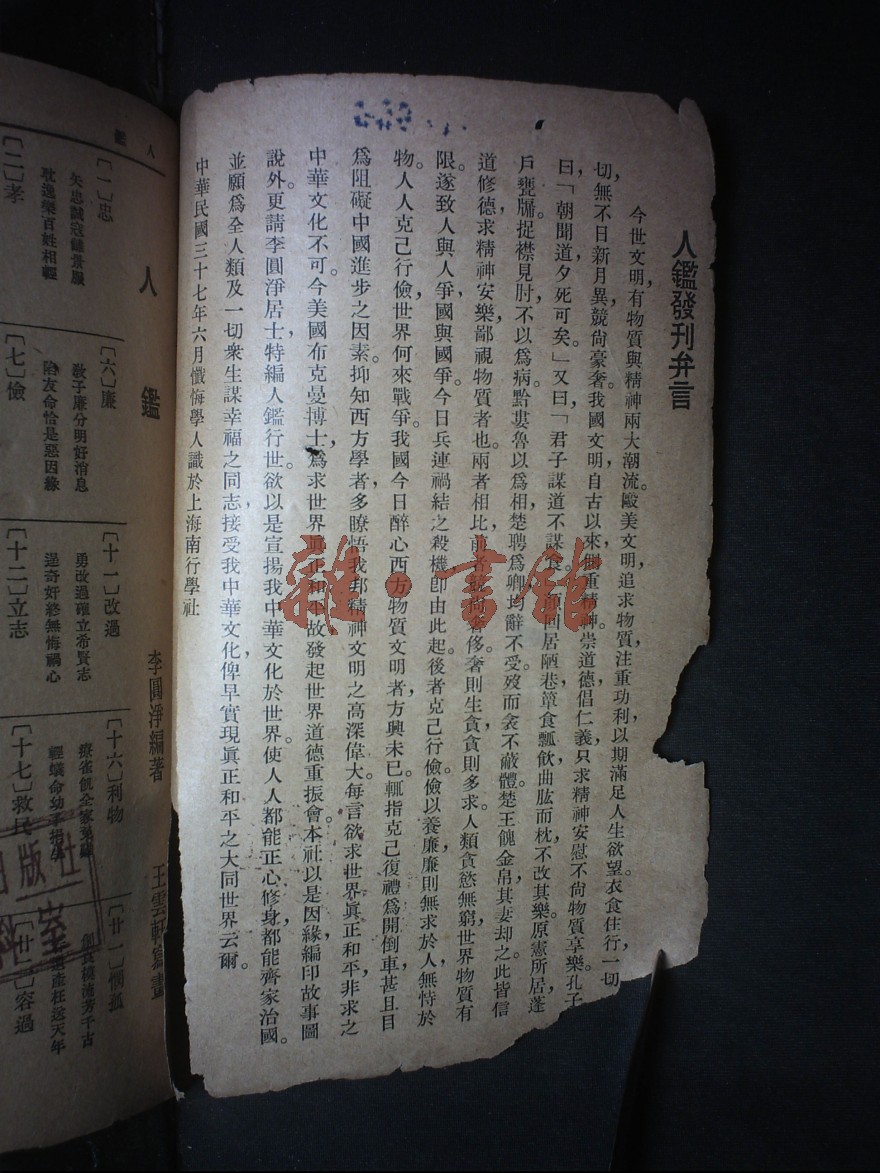 人鑑發刊弁言
今世文明，有物質與精神兩大潮流。歐美文明，追求物質，注重功利，以期滿足人生欲望，衣食住行，一切
切，無不日新月異，競尚豪奢。我國文明，自古以來，側重精神，崇道德，倡仁義，只求精神安慰，不尚物質享樂。孔子
曰，「朝聞道，夕死可矣。」又曰，「君子謀道不謀食。」顏回居陋巷，簞食瓢飲，曲肱而枕，不改其樂。原憲所居，蓬
戶甕牖。捉襟見肘，不以為病。黔婁魯以為相，楚聘為卿，均辭不受，歿而衾不蔽體。楚王餽金帛，其妻却之。此皆信
道修德，求精神安樂，鄙視物質者也。兩者相比，前者競尚奢侈。奢則生貪，貪則多求。人類貪慾無窮，世界物質有
限。遂致人與人爭，國與國爭。今日兵連禍結之殺機，即由此起。後者克己行儉，儉以養廉，廉則無求於人，無恃於
物。人人克己行儉，世界何來戰爭。我國今日醉心西方物質文明者，方興未已。輒指克己復禮為開倒車，甚且目
為阻礙中國進步之因素。抑知西方學者，多瞭悟我邦精神文明之高深偉大。每言欲求世界眞正和平，非求之
中華文化不可。今美國布克曼博士，為求世界眞正和平，故發起世界道德重振會。本社以是因緣，編印故事圖
說外。更請李圓淨居士特編人鑑行世。欲以是宣揚我中華文化於世界。使人人都能正心修身，都能齊家治國。
並願為全人類及一切衆生謀幸福之同志，接受我中華文化，俾早實現眞正和平之大同世界云爾。
中華民國三十七年六月懺悔學人識於上海南行學社
雜·書館
人鑑
人鑑
李圓淨編著
王雲軒繪畫
〔一〕忠
矢忠誠寇讎景服
耽逸樂百姓相輕
〔六〕廉
教子廉分明好消息
陷友命恰是惡因緣
〔十一〕改過
勇改過確立希賢志
逞奇奸終無悔禍心
〔十六〕利物
療雀飢全家
輕蟻命幼子
〔廿一〕憫孤
流芳千古
產枉送天年
〔二〕孝
〔七〕儉
〔十二〕立志
〔十七〕救民
〔廿二〕容過
版社
室